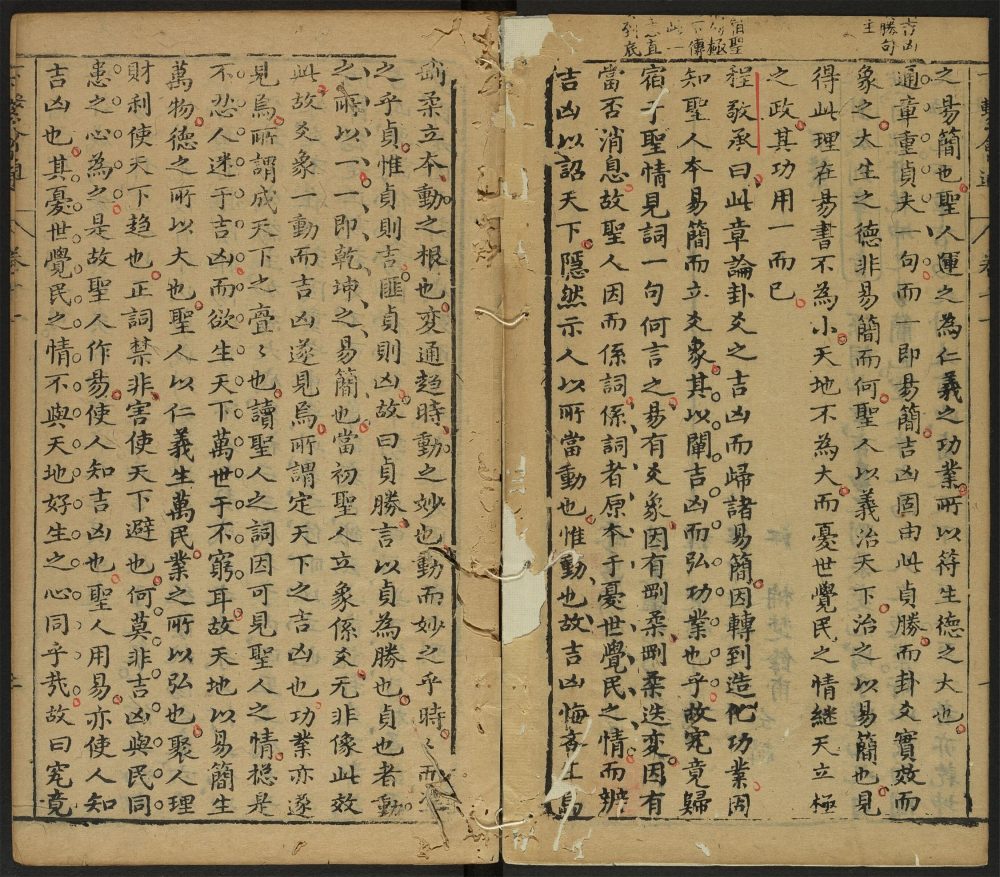 吉凶
勝句
主
之易簡也聖人運之為仁義之功業所以符生德之大也
通章重貞夫一句而一即易簡吉凶固由此貞勝而卦爻實效而
象之大生之德非易簡而何聖人以義治天下治之以易簡也見
得此理在易書不為小天地不為大而憂世覺民之情繼天立極
之政其功用一而已
程敬承曰此章論卦爻之吉凶而歸諸易簡因轉到造化功業固
知聖人本易簡而立爻象其以闡吉凶而弘功業也乎故究竟歸
宿于聖情見詞一句何言之易有爻象因有剛柔剛柔迭變因有
當否消息故聖人因而係詞係詞者原本于憂世覺民之情而辨
吉凶以詔天下隱然示人以所當動也惟動也故吉凶悔吝生焉
剛柔立本動之根也變通趨時動之妙也動而妙之乎時〻而
之乎貞惟貞則吉匪貞則凶故曰貞勝言以貞為勝也貞也者動
之所以一一即乾坤之易簡也當初聖人立象係爻无非像此效
此故爻象一動而吉凶遂見焉所謂定天下之吉凶也功業亦遂
見焉所謂成天下之亹〻也讀聖人之詞因可見聖人之情總是
不忍人迷于吉凶而欲生天下萬世于不窮耳故天地以易簡生
萬物德之所以大也聖人以仁義生萬民業之所以弘也聚人理
財利使天下趨也正詞禁非害使天下避也何莫非吉凶與民同
患之心為之是故聖人作易使人知吉凶也聖人用易亦使人知
吉凶也其憂世覺民之情不與天地好生之心同乎哉故曰究竟